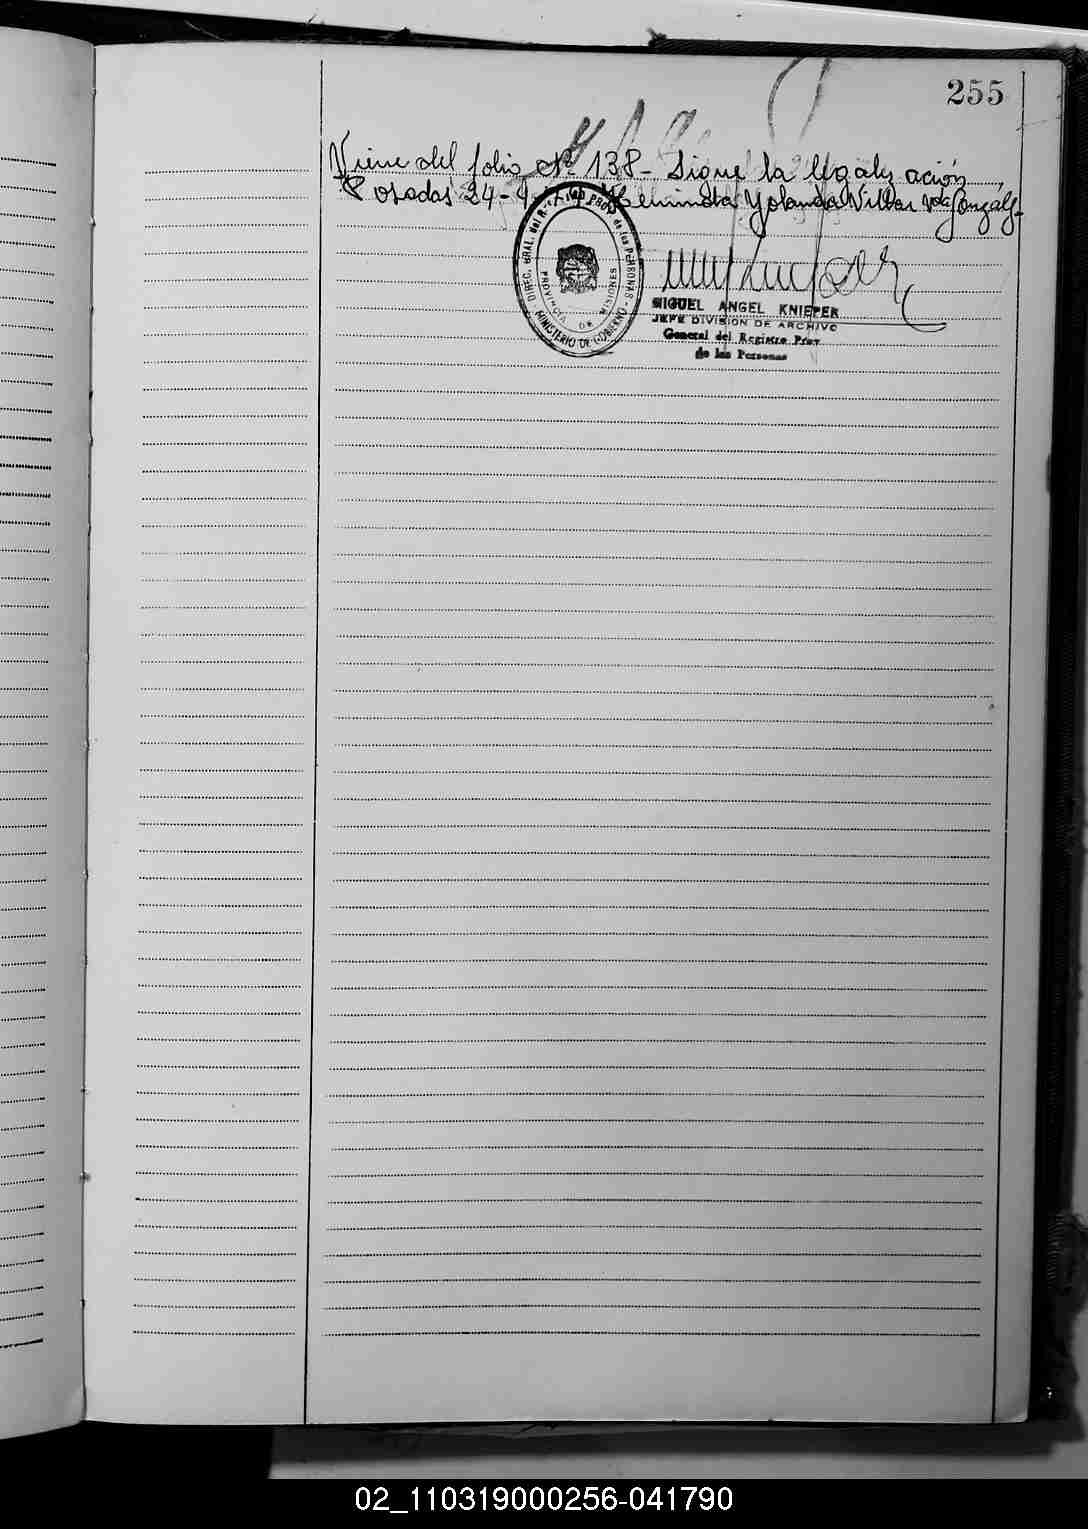 255
Viene del folio Nº 138 - Sigue la legalización
Posadas 24-9- Yolanda Villar vda Gonzalez
DIREC. GRAL. del de las PERSONAS
PROVINCIA DE MISIONES
MINISTERIO DE GOBIERNO
MIGUEL ANGEL KNIEPER
JEFE DIVISION DE ARCHIVO
General del Registro Prov.
de las Personas
02_110319000256-041790